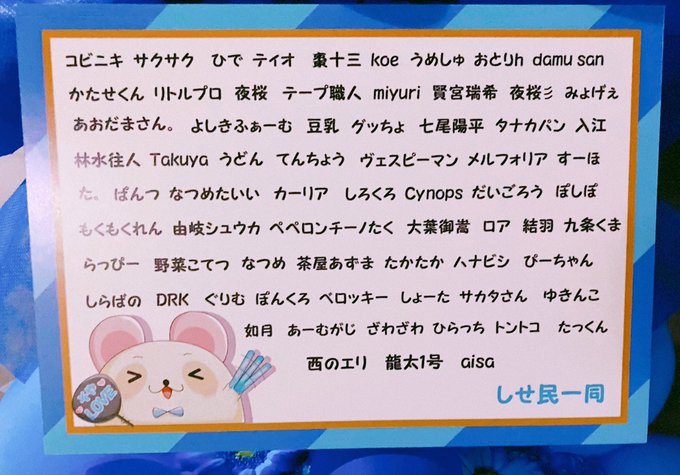 コビニキ サクサク ひで テイオ 棗十三 koe うめしゅ おとりh damu san
かたせくん リトルプロ 夜桜 テープ職人 miyuri 賢宮瑞希 夜桜彡 みょげぇ
あおだまさん。 よしきふぁーむ 豆乳 グッちょ 七尾陽平 タナカパン 入江
林水往人 Takuya うどん てんちょう ヴェスピーマン メルフォリア すーほ
た。 ぱんつ なつめたいい カーリア しろくろ Cynops だいごろう ぽしぽ
もくもくれん 由岐シュウカ ペペロンチーノたく 大葉御嵩 ロア 結羽 九条くま
らっぴー 野菜こてつ なつめ 茶屋あずま たかたか ハナビシ ぴーちゃん
しらばの DRK ぐりむ ぽんくろ ベロッキー しょーた サカタさん ゆきんこ
如月 あーむがじ ざわざわ ひらっち トントコ たっくん
西のエリ 龍太1号 aisa
LOVE
しせ民一同